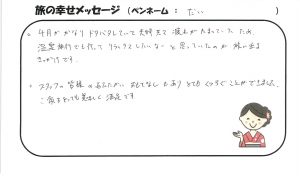 旅の幸せメッセージ（ペンネーム： だい ）
・4月がかなりドタバタしていて夫婦共に疲れがたまっていたため
温泉旅行でも行ってリラックスしたいな〜と思っていたのが
きっかけです。
・スタッフの皆様のあたたかいおもてなしもありとてもくつろぐことができました。
ご飯もとても美味しく満足です